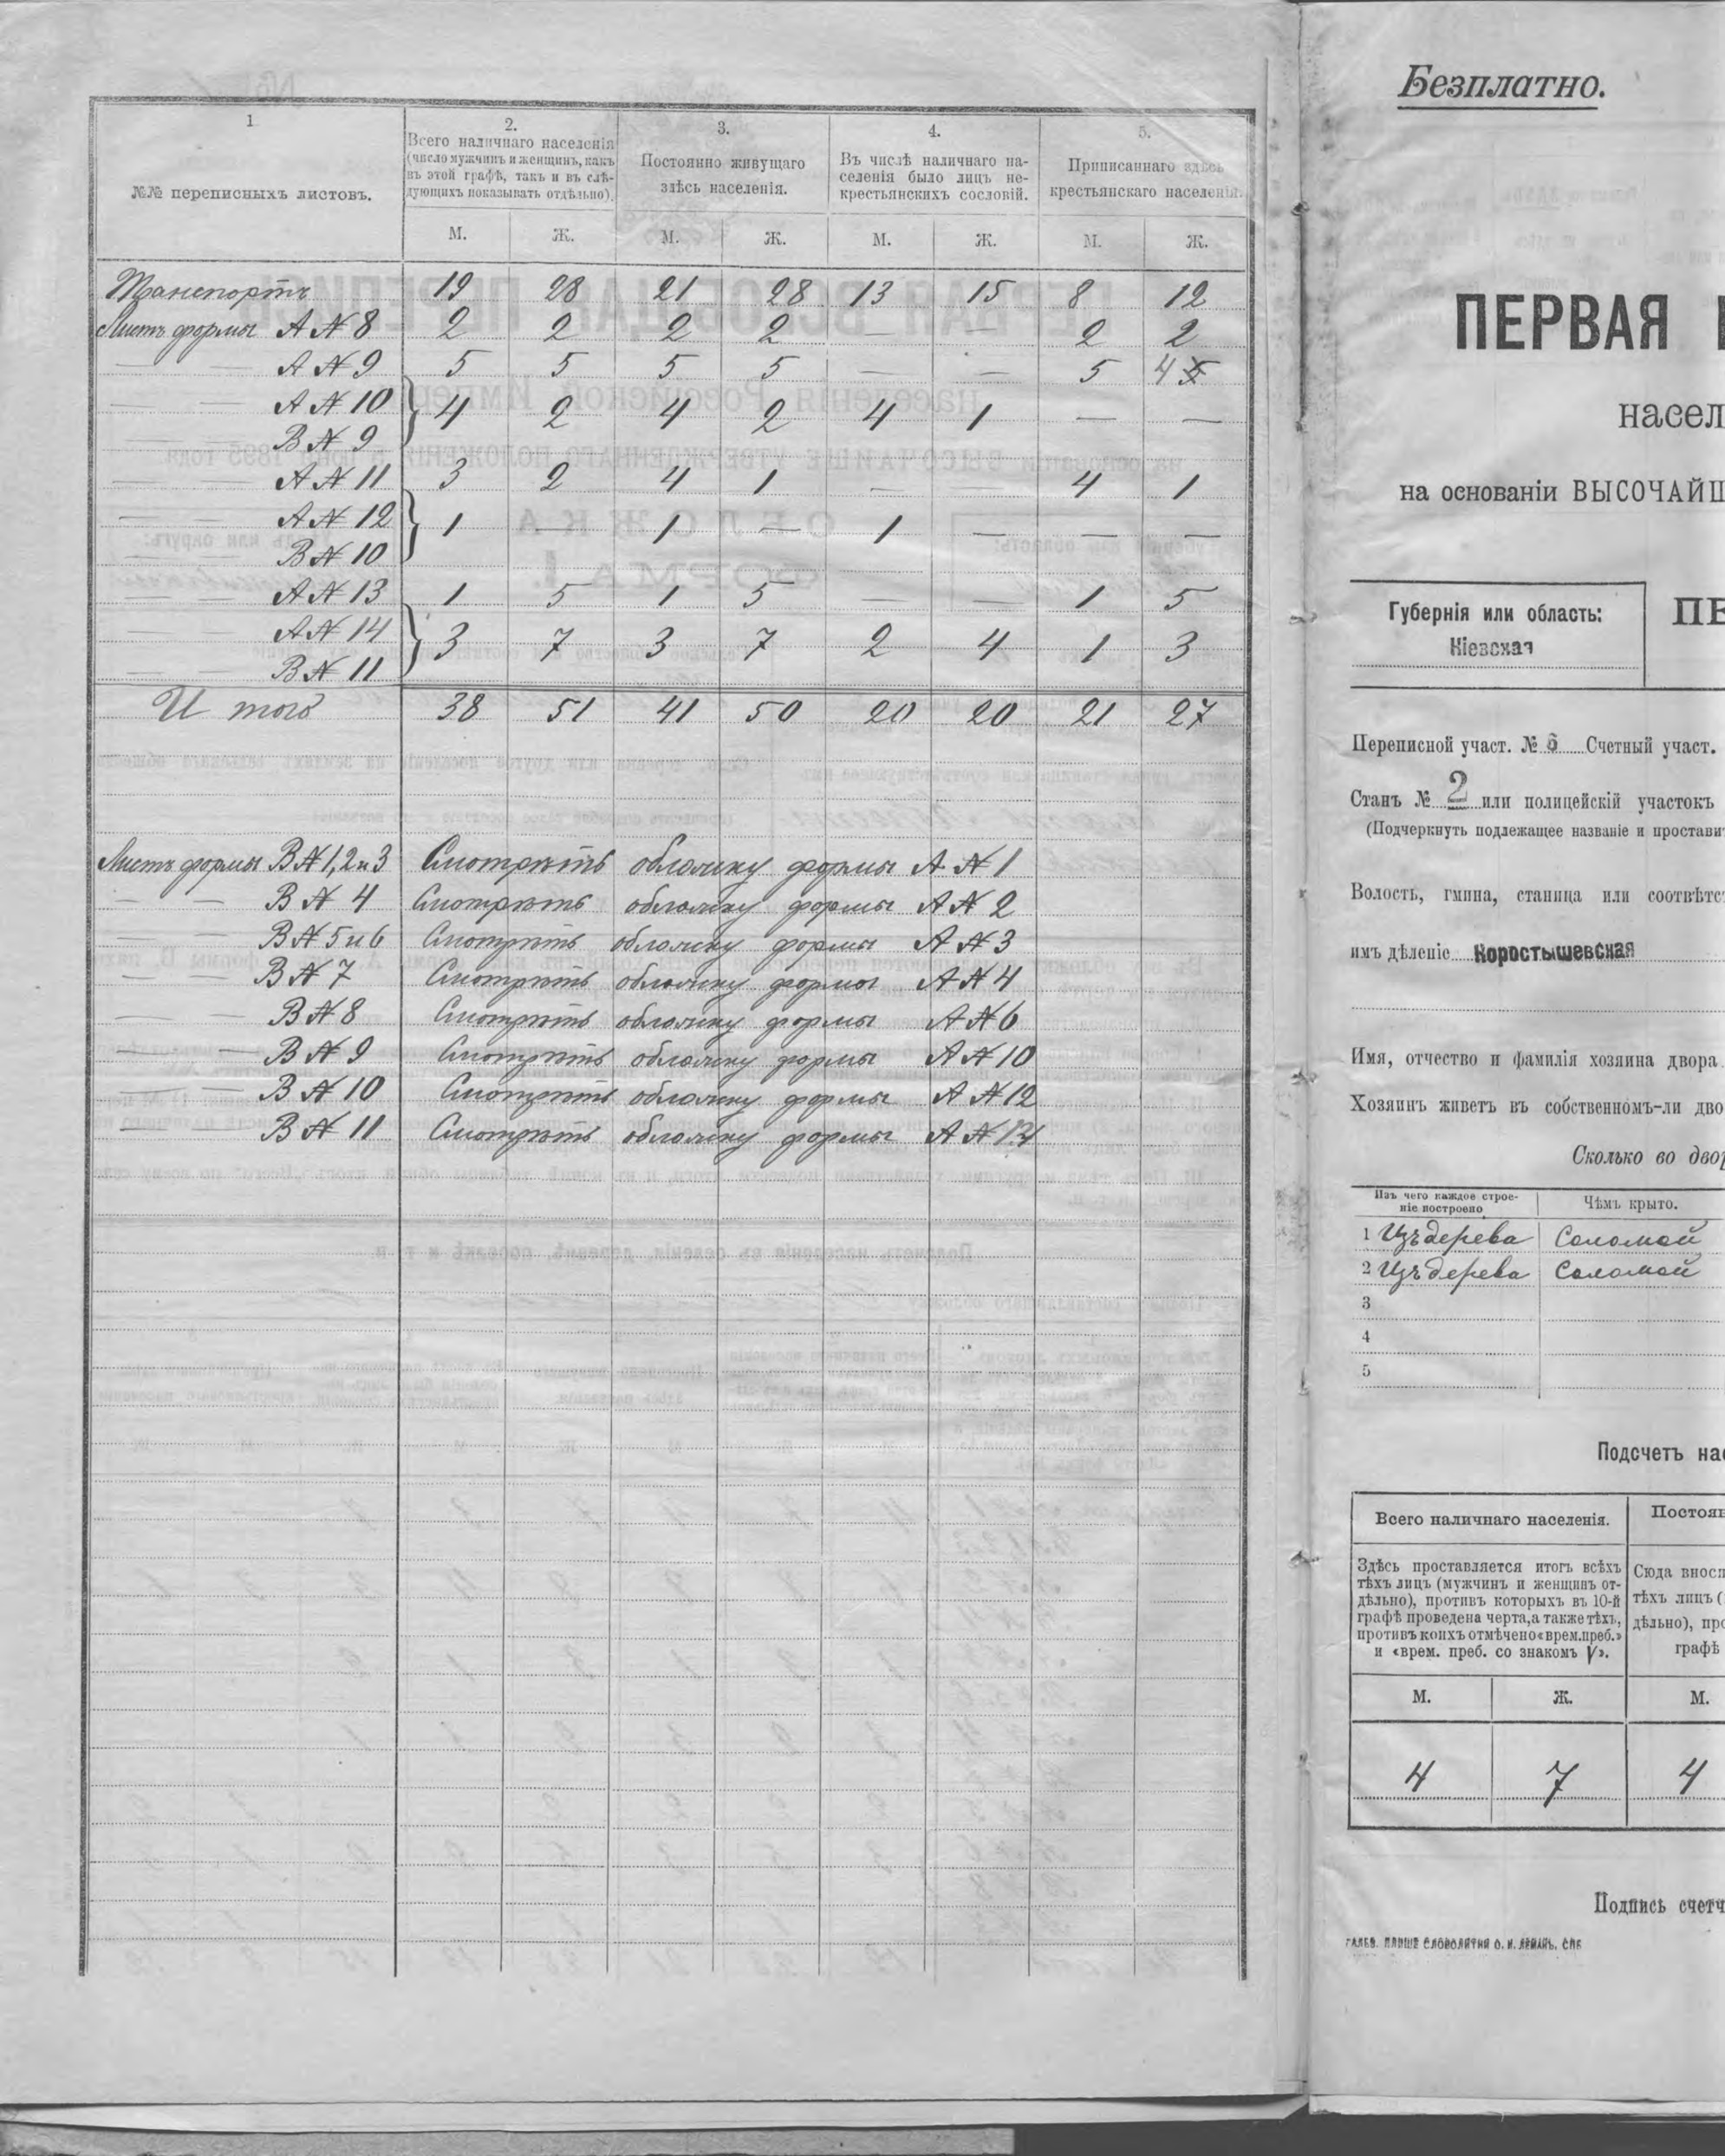 1
№№ переписныхъ листовъ.
2.
Всего наличнаго населенія
(число мужчинъ и женщинъ, какъ
въ этой графѣ, такъ и въ слѣ-
дующихъ показывать отдѣльно).
3.
Постоянно живущаго
здѣсь населенія.
4.
Въ числѣ наличнаго на-
селенія было лицъ не-
крестьянскихъ сословій.
5.
Приписаннаго здѣсь
крестьянскаго населенія.
М. Ж. М. Ж. М. Ж. М. Ж.
Транспортъ 19 28 21 28 13 15 8 12
Листъ формы А № 8 2 2 2 2 — — 2 2
— — А № 9 5 5 5 5 — — 5 4 5
— — А № 10 4 2 4 2 4 1 — —
— — В № 9
— — А № 11 3 2 4 1 — — 4 1
— — А № 12 1 — 1 — 1 — — —
— — В № 10
— — А № 13 1 5 1 5 — — 1 5
— — А № 14 3 7 3 7 2 4 1 3
— — В № 11
И того 38 51 41 50 20 20 21 27
Листъ формы В № 1, 2 и 3 Смотрѣть обложку формы А № 1
— — В № 4 Смотрѣть обложку формы А № 2
— — В № 5 и 6 Смотрѣть обложку формы А № 3
— — В № 7 Смотрѣть обложку формы А № 4
— — В № 8 Смотрѣть обложку формы А № 6
— — В № 9 Смотрѣть обложку формы А № 10
— — В № 10 Смотрѣть обложку формы А № 12
— — В № 11 Смотрѣть обложку формы А № 14
Безплатно.
ПЕРВАЯ
насел
на основаніи ВЫСОЧАЙШ
Губернія или область:
Кіевская
ПЕ
Переписной участ. № 6 Счетный участ.
Станъ № 2 или полицейскій участокъ
(Подчеркнуть подлежащее названіе и простави
Волость, гмина, станица или соотвѣтс
имъ дѣленіе Коростышевская
Имя, отчество и фамилія хозяина двора
Хозяинъ живетъ въ собственномъ-ли дво
Сколько во двор
Изъ чего каждое строе-
ніе построено
Чѣмъ крыто.
1 Изъ дерева Соломой
2 Изъ дерева Соломой
3
4
5
Подсчетъ на
Всего наличнаго населенія.
Постоян
Здѣсь проставляется итогъ всѣхъ
тѣхъ лицъ (мужчинъ и женщинъ от-
дѣльно), противъ которыхъ въ 10-й
графѣ проведена черта, а также тѣхъ,
противъ коихъ отмѣчено «врем. преб.»
и «врем. преб. со знакомъ V».
Сюда внося
тѣхъ лицъ (
дѣльно), про
графѣ
М. Ж. М.
4 7 4
Подпись счетч
О. И. ЛЕМАНЪ. СПБ